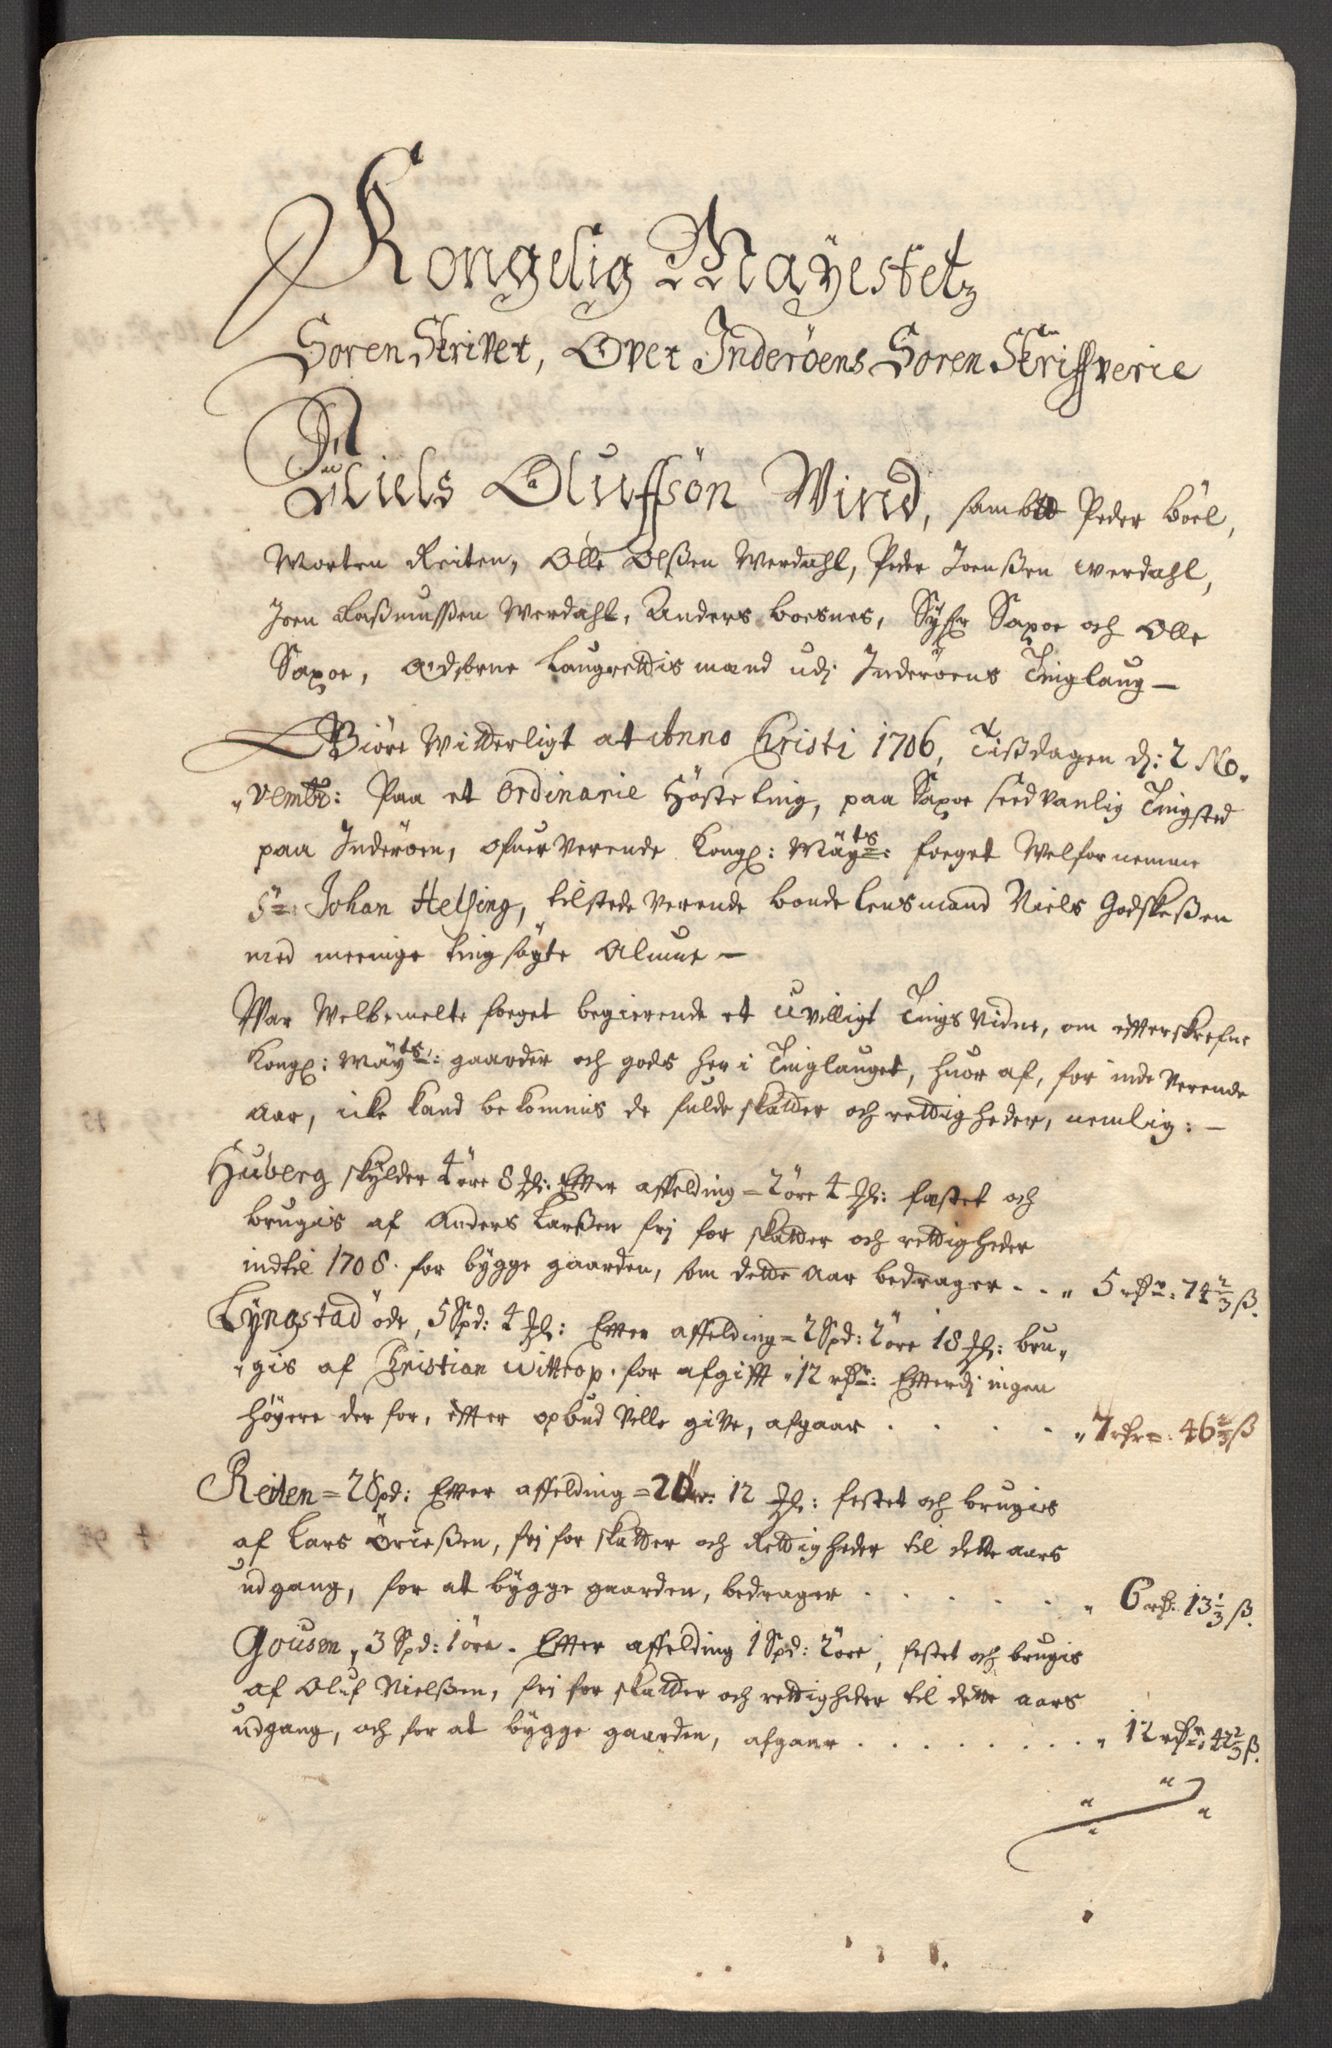 Kongelig Mayestetz
Soren Skriver, Over Inderöens Soren Skriffverie
Niels Oluffsön Wind, sambt Peder Böel,
Morten Reiten, Olle Olßen Werdahl, Peder Joenßen Werdahl,
Joen Raßmussen Werdahl, Anders Boesnes, Saxoe och Olle
Saxoe, Laugrettis mænd udj Inderöens Tinglaug —
Giöre Witterligt at Anno Christi 1706, Tißdagen dj: 2 No„
„vembr: Paa et Ordinarie Höste ting, paa Saxoe seedvanlig Tingsted
paa Inderöen, ofver Verende Kongl: Mayts: foeget Welfornemme
Sr: Johan Helsing, tilstede Verende bonde lensmand Niels Godskeßen
med meenige ting söegte Almue —
War Welbemelte foeget begierende et uvilligt Tings Vidne, om efterskrefne
Kongl: Mayts: gaarder och gods her i Tinglauget, huor af, for inde Verende
Aar, icke kand bekommis de fulde skatter och rettigheder, nemlig: —
Huberg skylder 4 öre 8 : Efter affelding = 2 öre 4 : festet och
brugis af Anders Larßen frj for skatter och rettigheder
indtil 1708. for bygge gaarden, som dette Aar bedrager . . „ 5 rdr: 74 2/3 ß.
Lyngstad öde, 5 Spd: 4 : Efter affelding = 2 Spd: 2 öre 18 : bru„
„gis af Christian Wittrop. for afgifft „ 12 rdr: Efterdj ingen
höyere der for, effter opbud Ville give, afgaar . . . . „ 7 rdr: 46 2/3 ß
Reiten = 2 Spd: Efter affelding = 2 ör: 12 : festet och brugis
af Lars frj for skatter och Rettigheder til dette aars
udgang, for at bygge gaarden, bedrager . . . . . „ 6 rd: 13 1/3 ß.
Gousen, 3 Spd: 1 öre. Efter affelding 1 Spd: 2 öre, festet och brugis
af Oluf Nielßen, frj for skatter och rettigheder til dette aars
udgang, och for at bygge gaarden, afgaar . . . . . . . . „ 12 rdr: 42 2/3 ß.